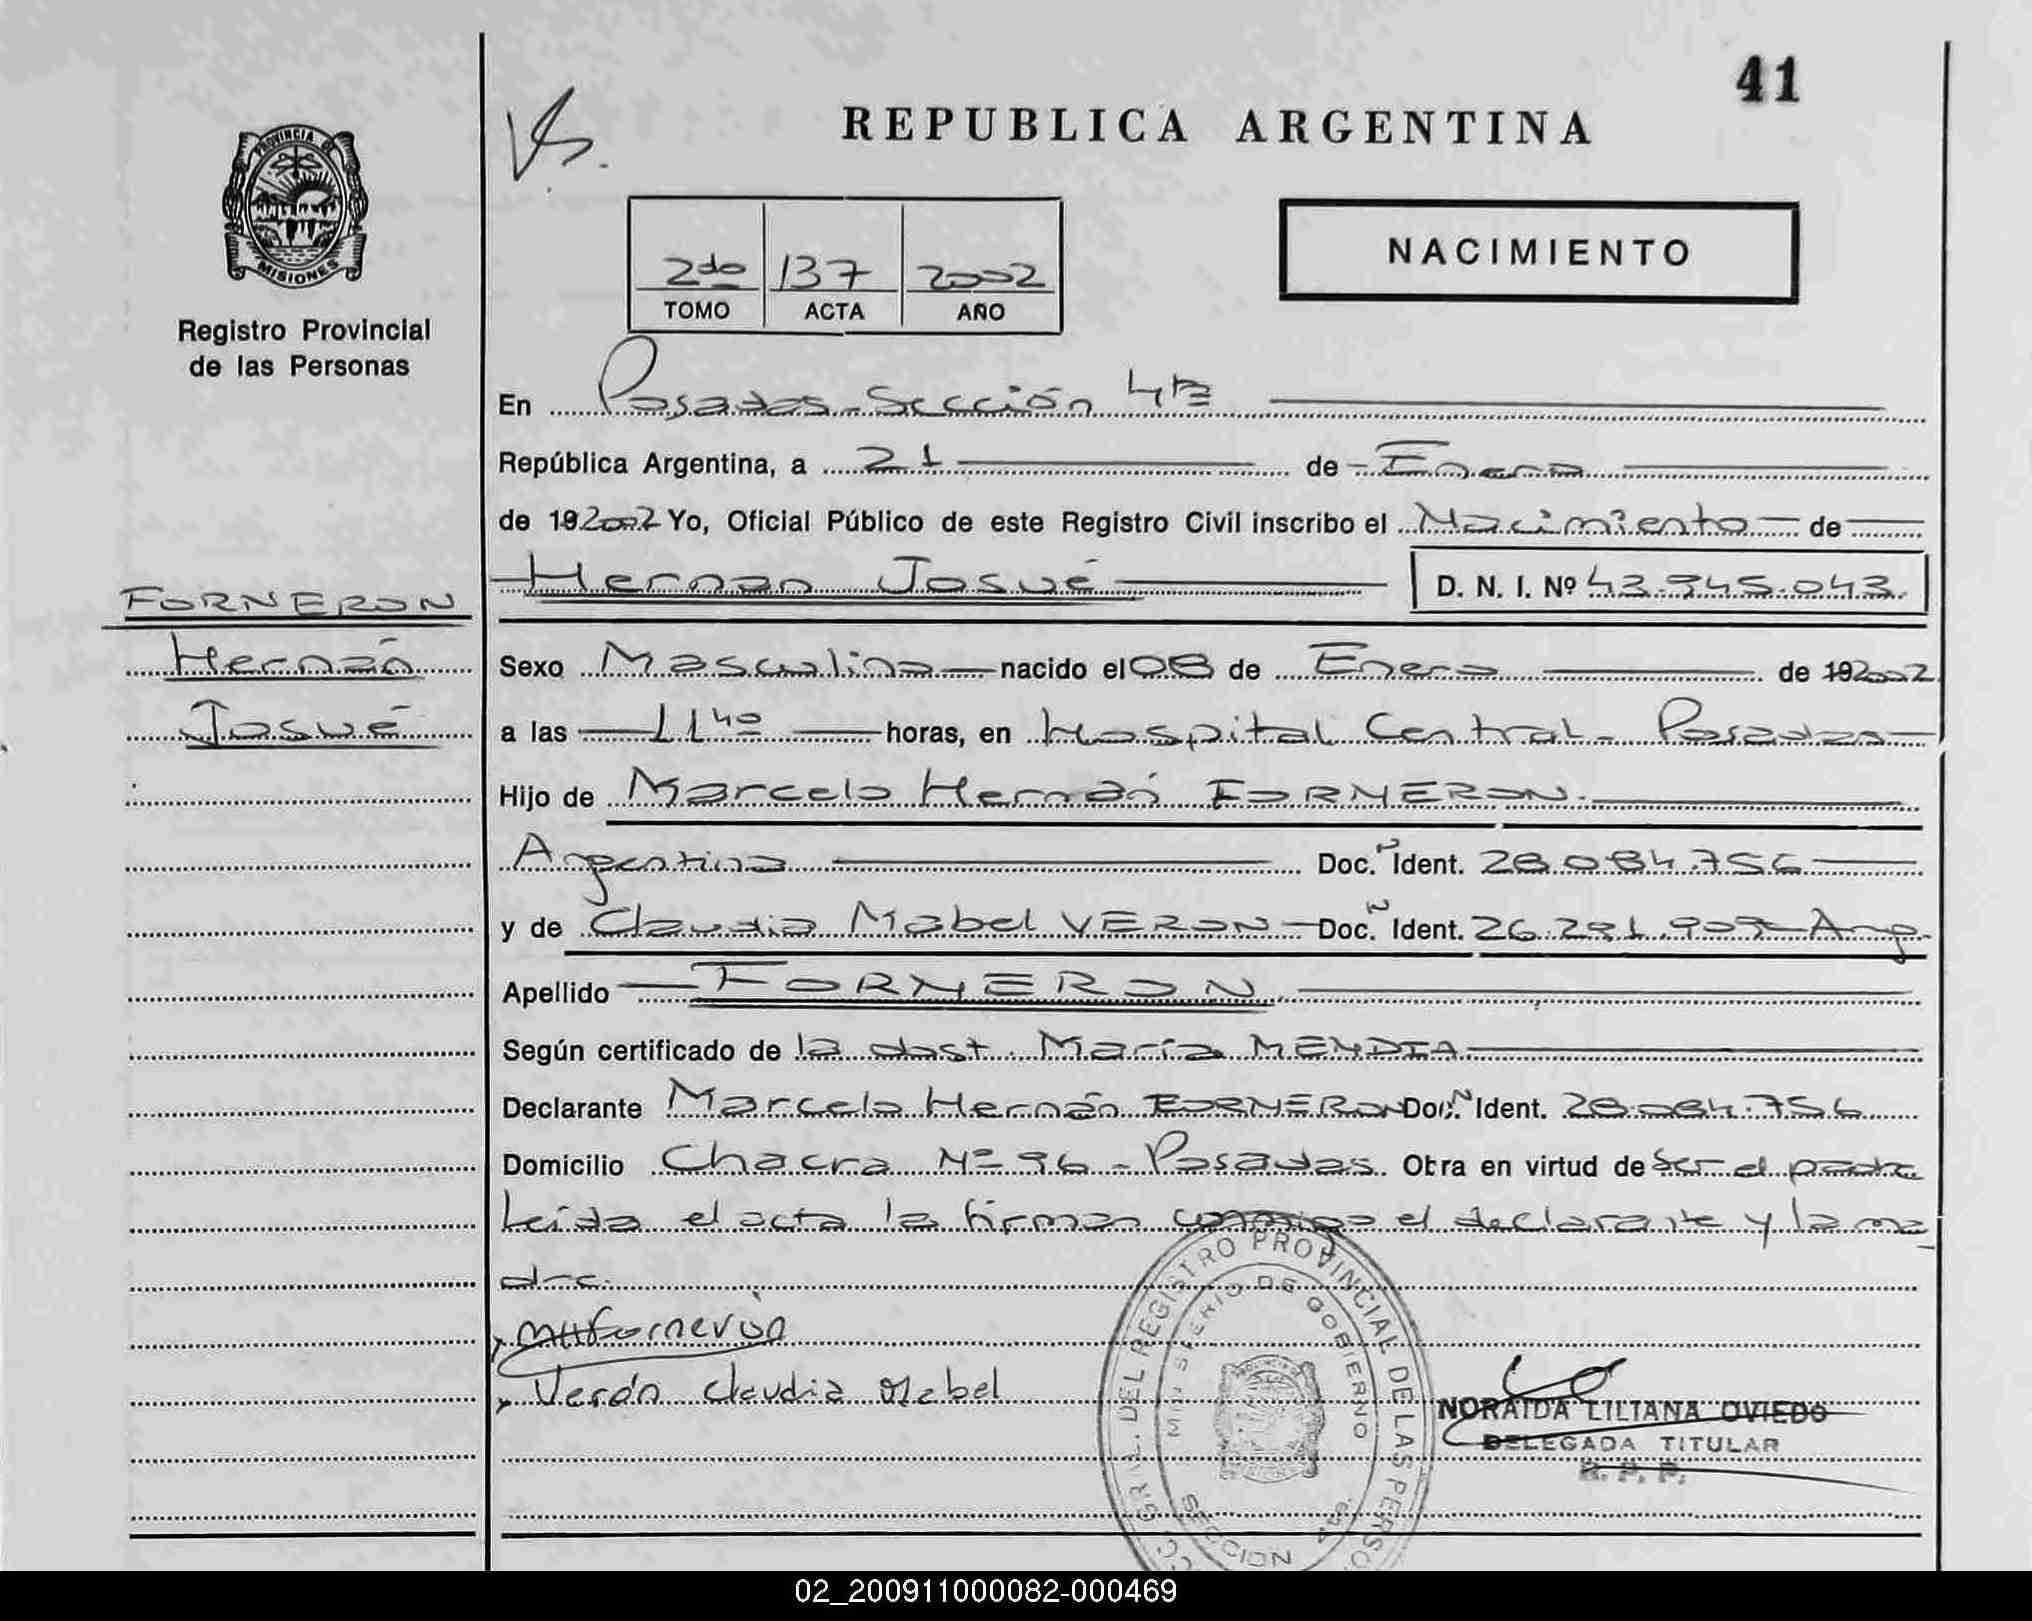 41
REPUBLICA ARGENTINA
PROVINCIA DE
MISIONES
Registro Provincial
de las Personas
NACIMIENTO
2do 137 2002
TOMO ACTA AÑO
En Posadas - Sección 4ta
República Argentina, a 21 de Enero
de 192002 Yo, Oficial Público de este Registro Civil inscribo el Nacimiento de
Hernan Josué D. N. I. Nº 43.945.043.
FORNERON
Hernán
Josué
Sexo Masculino nacido el 08 de Enero de 192002
a las 11 40 horas, en Hospital Central - Posadas
Hijo de Marcelo Hernán FORNERON.
Argentino Doc. N Ident. 28.084.756
y de Claudia Mabel VERON Doc. N Ident. 26.291.909 Arg.
Apellido FORNERON
Según certificado de la obst. María MENDIA
Declarante Marcelo Hernán FORNERON Doc. N Ident. 28.084.756
Domicilio Chacra Nº 96 - Posadas. Obra en virtud de ser el padre
Leída el acta la firman conmigo el declarante y la ma
dre.
MHForneron
Verón Claudia Mabel
REGISTRO PROVINCIAL DE LAS PERSO
MINISTERIO DE GOBIERNO
SECCION 4ta.
NORAIDA LILIANA OVIEDO
DELEGADA TITULAR
R. P. P.
02_200911000082-000469